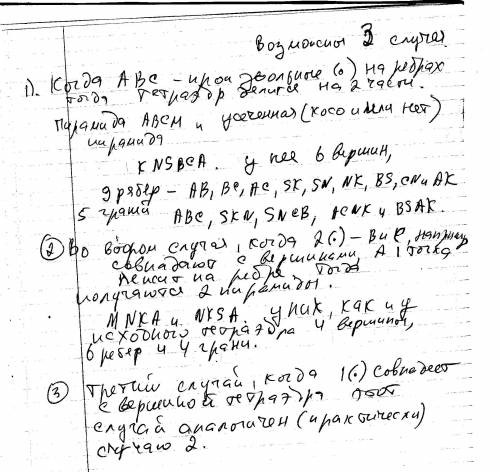 Возможны 3 случая
1). Когда ABC – произвольные (.) на рёбрах
тогда тетраэдр делится на 2 части.
Пирамида ABCM и усеченная (косо или нет)
пирамида
KNSBCA. у нее 6 вершин,
9 рябер – AB, BC, AC, SK, SN, NK, BS, CN и AK
5 граней ABC, SKN, SNCB, ACNK и BSAK.
2 Во втором случая, когда 2(.) – B и C, например
совпадают с вершинами, A, точка
лежит на ребре тогда
получаются 2 пирамиды.
MNKA и NKSA. у них, как и у
исходного тетраэдра 4 вершины,
6 ребер и 4 грани.
3 Третий случай, когда 1(.) совпадает
с вершиной тетраэдра этот
случай аналогичен (практически)
случаю 2.